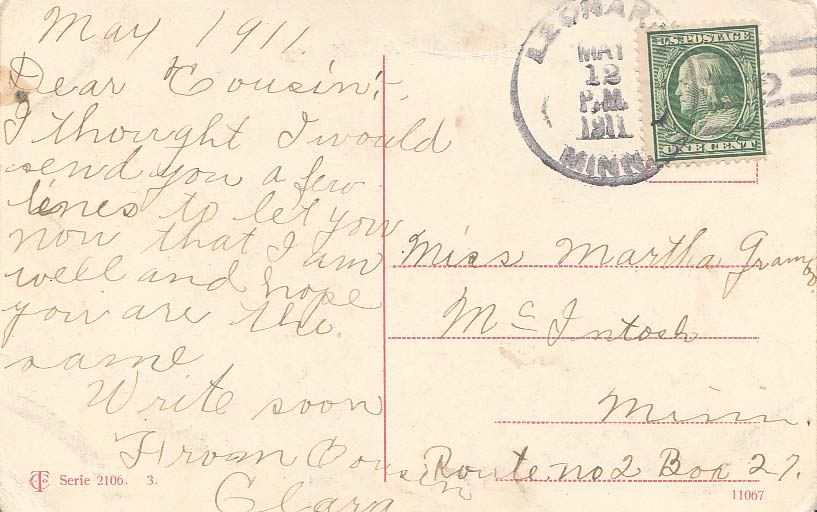 May 1911.
Dear Cousin!
I thought I would
send you a few
lines to let you
now that I am
well and hope
you are the
same
Write soon
From Cousin
Clara
Serie 2106. 3.
MAY
12
P.M.
1911
MINN.
U.S. POSTAGE
ONE CENT
2
Miss Martha
McIntosh
Minn.
Route. no 2 Box 27.
11067